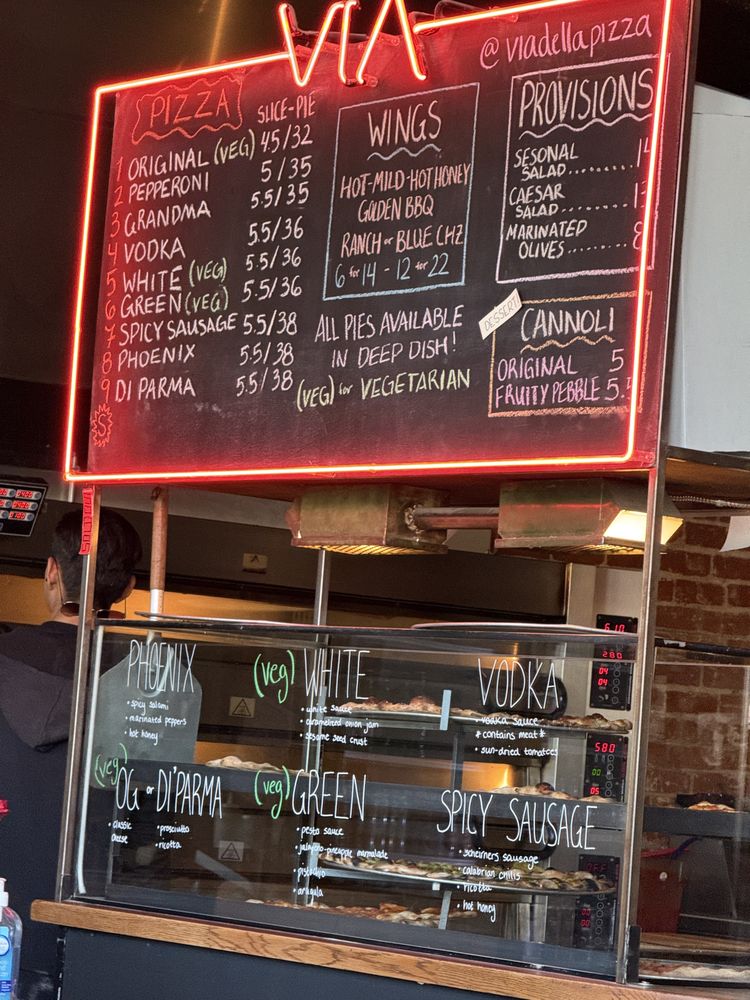 VIA
@viadellapizza
PIZZA
SLICE-PIE
1 ORIGINAL (VEG) 4.5/32
2 PEPPERONI 5/35
3 GRANDMA 5.5/35
4 VODKA 5.5/36
5 WHITE (VEG) 5.5/36
6 GREEN (VEG) 5.5/36
7 SPICY SAUSAGE 5.5/38
8 PHOENIX 5.5/38
9 DI PARMA 5.5/38
WINGS
HOT-MILD-HOT HONEY
GOLDEN BBQ
RANCH or BLUE CHZ
6 for 14 - 12 for 22
ALL PIES AVAILABLE
IN DEEP DISH!
(VEG) for VEGETARIAN
PROVISIONS
SESONAL
SALAD
CAESAR
SALAD
MARINATED
OLIVES ........ 8
DESSERT
CANNOLI
ORIGINAL 5
FRUITY PEBBLE 5.5
PHOENIX
• spicy salami
• marinated peppers
• hot honey
(veg) WHITE
• white sauce
• caramelized onion jam
• sesame seed crust
VODKA
• vodka sauce
* contains meat *
• sun-dried tomatoes
(veg) OG or DI'PARMA
• classic cheese
• prosciutto
• ricotta
(veg) GREEN
• pesto sauce
• jalapeño-pineapple marmalade
• pistachio
• arugula
SPICY SAUSAGE
• schreiners sausage
• calabrian chilis
• ricotta
• hot honey
610
280
580